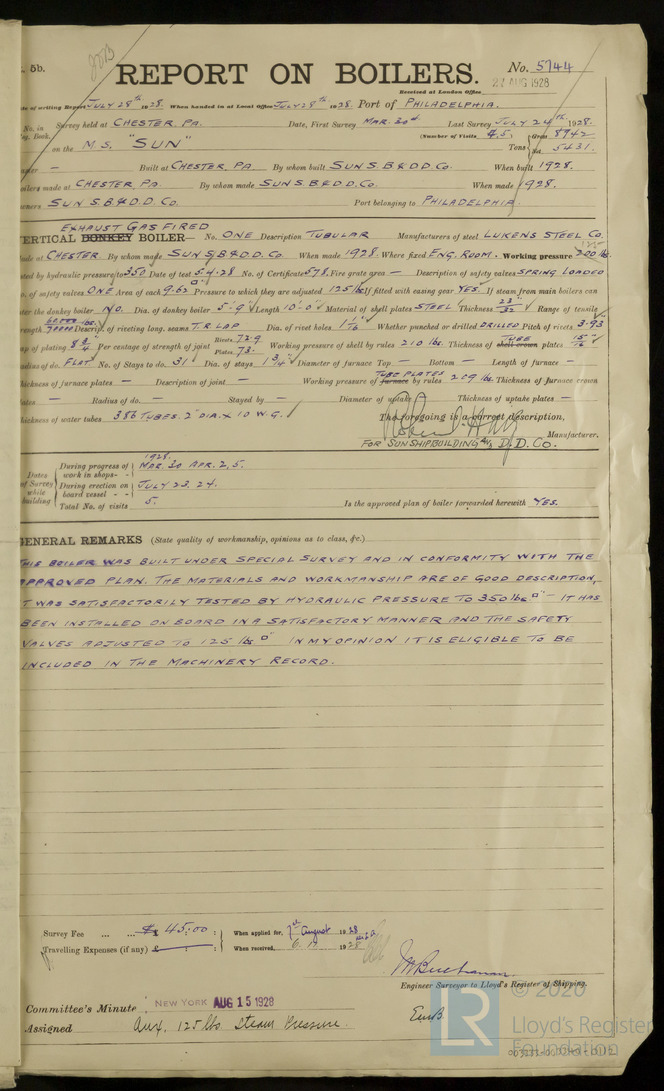 5b.
REPORT ON BOILERS.
No. 5744
27 AUG 1928
Received at London Office
of writing Report JULY 28th 1928. When handed in at Local Office JULY 28th 1928. Port of PHILADELPHIA.
No. in Survey held at CHESTER. PA. Date, First Survey MAR. 30th Last Survey JULY 24th 1928.
Book. (Number of Visits 5.) Gross 8942
on the M.S. "SUN" Tons Net 5431.
— Built at CHESTER, PA By whom built SUN S.B & D.D. Co. When built 1928.
made at CHESTER PA. By whom made SUN S.B & D.D. Co. When made 1928.
SUN S.B & D.D. Co. Port belonging to PHILADELPHIA
EXHAUST GAS FIRED
ERTICAL DONKEY BOILER— No. ONE Description TUBULAR Manufacturers of steel LUKENS STEEL Co.
125
at CHESTER. By whom made SUN S.B & D.D. Co. When made 1928. Where fixed ENG. ROOM. Working pressure 200 lb.
ted by hydraulic pressure to 350 Date of test 5.4.28 No. of Certificate 578. Fire grate area — Description of safety valves SPRING LOADED
of safety valves ONE Area of each 9.62 □" Pressure to which they are adjusted 125 lbs If fitted with easing gear YES. If steam from main boilers can
ter the donkey boiler NO. Dia. of donkey boiler 5'-9" Length 10'-0" Material of shell plates STEEL Thickness 23/32" Range of tensile
Descrip. of riveting long. seams T.R. LAP Dia. of rivet holes 1 1/16" Whether punched or drilled DRILLED Pitch of rivets 3.93
of plating 8 3/4 Per centage of strength of joint Rivets 72.9 Plates 73. Working pressure of shell by rules 210 lbs. Thickness of shell crown TUBE plates 15/16"
of do. FLAT No. of Stays to do. 31 Dia. of stays 1 3/4" Diameter of furnace Top — Bottom — Length of furnace —
hickness of furnace plates — Description of joint — Working pressure of furnace TUBE PLATES by rules 209 lbs. Thickness of furnace crown
— Radius of do. — Stayed by — Diameter of uptake Thickness of uptake plates —
hickness of water tubes 386 TUBES. 2" DIA. X 10 W.G. The foregoing is a correct description,
FOR SUN SHIPBUILDING & D.D. Co. Manufacturer.
Dates of Survey while building
1928.
During progress of work in shops- - MAR. 30 APR. 2, 5.
During erection on board vessel - - JULY 23, 24.
Total No. of visits 5. Is the approved plan of boiler forwarded herewith YES.
GENERAL REMARKS (State quality of workmanship, opinions as to class, &c.)
HIS BOILER WAS BUILT UNDER SPECIAL SURVEY AND IN CONFORMITY WITH THE
APPROVED PLAN. THE MATERIALS AND WORKMANSHIP ARE OF GOOD DESCRIPTION,
T WAS SATISFACTORILY TESTED BY HYDRAULIC PRESSURE TO 350 lbs □" — IT HAS
BEEN INSTALLED ON BOARD IN A SATISFACTORY MANNER AND THE SAFETY
VALVES ADJUSTED TO 125 lbs □" IN MY OPINION IT IS ELIGIBLE TO BE
INCLUDED IN THE MACHINERY RECORD.
Survey Fee ... ... $ 45.00 : When applied for, 1st August 1928
Travelling Expenses (if any) £ : : When received, 1928
Engineer Surveyor to Lloyd's Register of Shipping.
Committee's Minute NEW YORK AUG 15 1928
Assigned Aux. 125 lbs Steam Pressure.
LR © 2020
Lloyd's Register
Foundation